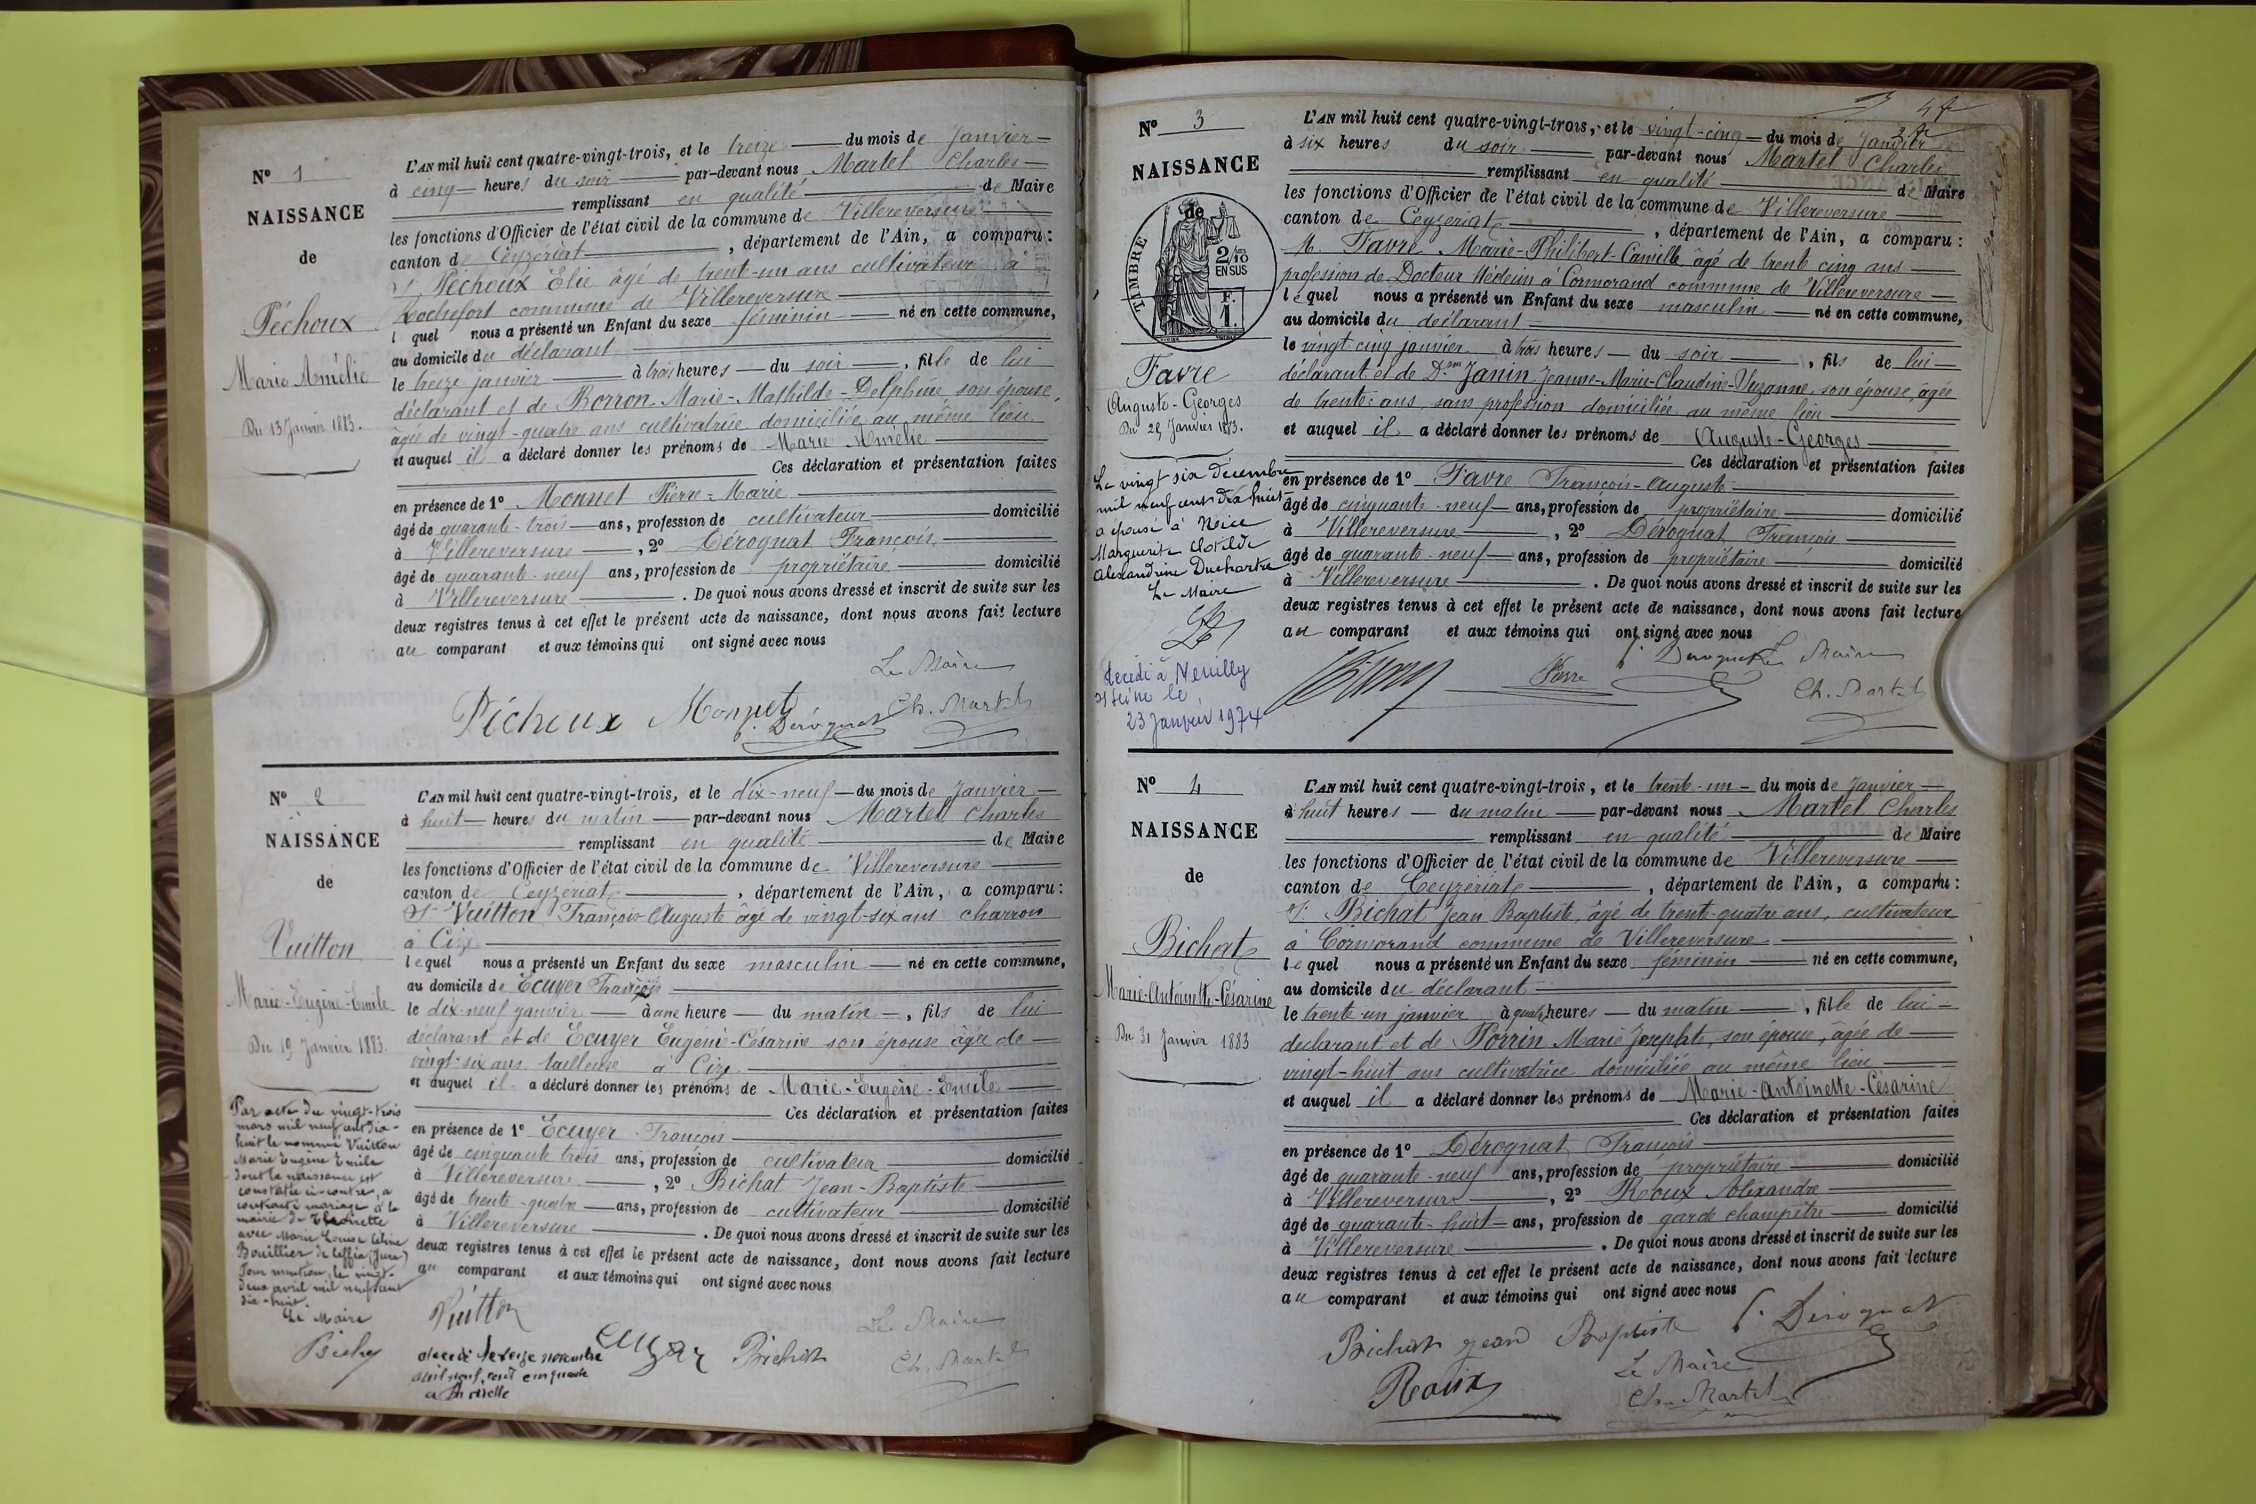 N° 1
NAISSANCE
de
Péchoux
Marie Amélie
Du 13 Janvier 1883.
L'AN mil huit cent quatre-vingt-trois, et le treize du mois de Janvier
à cinq heures du soir par-devant nous Martel Charles
remplissant en qualité de Maire
les fonctions d'Officier de l'état civil de la commune de Villereversure
canton de Ceyzériat, département de l'Ain, a comparu :
Sr Péchoux Elie âgé de trente-un ans cultivateur à
Rochefort commune de Villereversure
lequel nous a présenté un Enfant du sexe féminin né en cette commune,
au domicile du déclarant
le treize janvier à trois heures du soir, fille de lui
déclarant et de Borron Marie-Mathilde-Delphine son épouse,
âgée de vingt-quatre ans cultivatrice domiciliée au même lieu
et auquel il a déclaré donner les prénoms de Marie Amélie
Ces déclaration et présentation faites
en présence de 1° Monnet Pierre-Marie
âgé de quarante-trois ans, profession de cultivateur domicilié
à Villereversure, 2° Dérognat François
âgé de quarante-neuf ans, profession de propriétaire domicilié
à Villereversure. De quoi nous avons dressé et inscrit de suite sur les
deux registres tenus à cet effet le présent acte de naissance, dont nous avons fait lecture
au comparant et aux témoins qui ont signé avec nous
Le Maire
Péchoux Monnet f. Dérognat Ch. Martel
N° 2
NAISSANCE
de
Vuitton
Marie-Eugène-Emile
Du 19 Janvier 1883.
Par acte du vingt-trois
mars mil neuf cent dix-
huit le nommé Vuitton
Marie Eugène Emile
dont la naissance est
constatée ci-contre, a
contracté mariage à la
mairie de Thoirette
avec Marie Louise Céline
Bouillier de Ceffia (Jura)
Pour mention, le vingt-
deux avril mil neuf cent
dix-huit.
Le Maire
L'AN mil huit cent quatre-vingt-trois, et le dix-neuf du mois de Janvier
à huit heures du matin par-devant nous Martel Charles
remplissant en qualité de Maire
les fonctions d'Officier de l'état civil de la commune de Villereversure
canton de Ceyzériat, département de l'Ain, a comparu :
Sr Vuitton François-Auguste âgé de vingt-six ans charron
à Cize
lequel nous a présenté un Enfant du sexe masculin né en cette commune,
au domicile de Ecuyer François
le dix-neuf janvier à une heure du matin, fils de lui
déclarant et de Ecuyer Eugénie-Césarine son épouse âgée de
vingt-six ans tailleuse à Cize
et auquel il a déclaré donner les prénoms de Marie-Eugène-Emile
Ces déclaration et présentation faites
en présence de 1° Ecuyer François
âgé de cinquante trois ans, profession de cultivateur domicilié
à Villereversure, 2° Bichat Jean-Baptiste
âgé de trente-quatre ans, profession de cultivateur domicilié
à Villereversure. De quoi nous avons dressé et inscrit de suite sur les
deux registres tenus à cet effet le présent acte de naissance, dont nous avons fait lecture
au comparant et aux témoins qui ont signé avec nous
Vuitton Ecuyer Bichat Le Maire
Ch. Martel
décédé le treize novembre
mil neuf cent cinquante
à Thoirette
N° 3
NAISSANCE
de
TIMBRE
2/10
EN SUS
F.
1.
Favre
Auguste-Georges
Du 25 Janvier 1883.
Le vingt six décembre
mil neuf cent dix huit
a épousé à Nice
Marguerite Clotilde
Alexandrine Duchartre
Le Maire
décédé à Neuilly
s/Seine le
23 Janvier 1974
L'AN mil huit cent quatre-vingt-trois, et le vingt-cinq du mois de Janvier
à six heures du soir par-devant nous Martel Charles
remplissant en qualité de Maire
les fonctions d'Officier de l'état civil de la commune de Villereversure
canton de Ceyzériat, département de l'Ain, a comparu :
M. Favre Marie-Philibert-Camille âgé de trente cinq ans
profession de Docteur Médecin à Cormorand commune de Villereversure
lequel nous a présenté un Enfant du sexe masculin né en cette commune,
au domicile du déclarant
le vingt cinq janvier à trois heures du soir, fils de lui
déclarant et de Dme Janin Jeanne-Marie-Claudine-Suzanne, son épouse, âgée
de trente ans, sans profession domiciliée au même lieu
et auquel il a déclaré donner les prénoms de Auguste-Georges
Ces déclaration et présentation faites
en présence de 1° Favre François-Auguste
âgé de cinquante-neuf ans, profession de propriétaire domicilié
à Villereversure, 2° Dérognat François
âgé de quarante-neuf ans, profession de propriétaire domicilié
à Villereversure. De quoi nous avons dressé et inscrit de suite sur les
deux registres tenus à cet effet le présent acte de naissance, dont nous avons fait lecture
au comparant et aux témoins qui ont signé avec nous
Favre f. Dérognat Le Maire
Ch. Martel
N° 4
NAISSANCE
de
Bichat
Marie-Antoinette-Césarine
Du 31 Janvier 1883
L'AN mil huit cent quatre-vingt-trois, et le trente-un du mois de Janvier
à huit heures du matin par-devant nous Martel Charles
remplissant en qualité de Maire
les fonctions d'Officier de l'état civil de la commune de Villereversure
canton de Ceyzériat, département de l'Ain, a comparu :
Sr Bichat Jean Baptiste, âgé de trente-quatre ans, cultivateur
à Cormorand commune de Villereversure
lequel nous a présenté un Enfant du sexe féminin né en cette commune,
au domicile du déclarant
le trente un janvier à quatre heures du matin, fille de lui
déclarant et de Porrin Marie Josephte, son épouse, âgée de
vingt-huit ans cultivatrice domiciliée au même lieu
et auquel il a déclaré donner les prénoms de Marie-Antoinette-Césarine
Ces déclaration et présentation faites
en présence de 1° Dérognat François
âgé de quarante-neuf ans, profession de propriétaire domicilié
à Villereversure, 2° Roux Alexandre
âgé de quarante-huit ans, profession de garde champêtre domicilié
à Villereversure. De quoi nous avons dressé et inscrit de suite sur les
deux registres tenus à cet effet le présent acte de naissance, dont nous avons fait lecture
au comparant et aux témoins qui ont signé avec nous
Bichat Jean Baptiste f. Dérognat
Roux
Le Maire
Ch. Martel